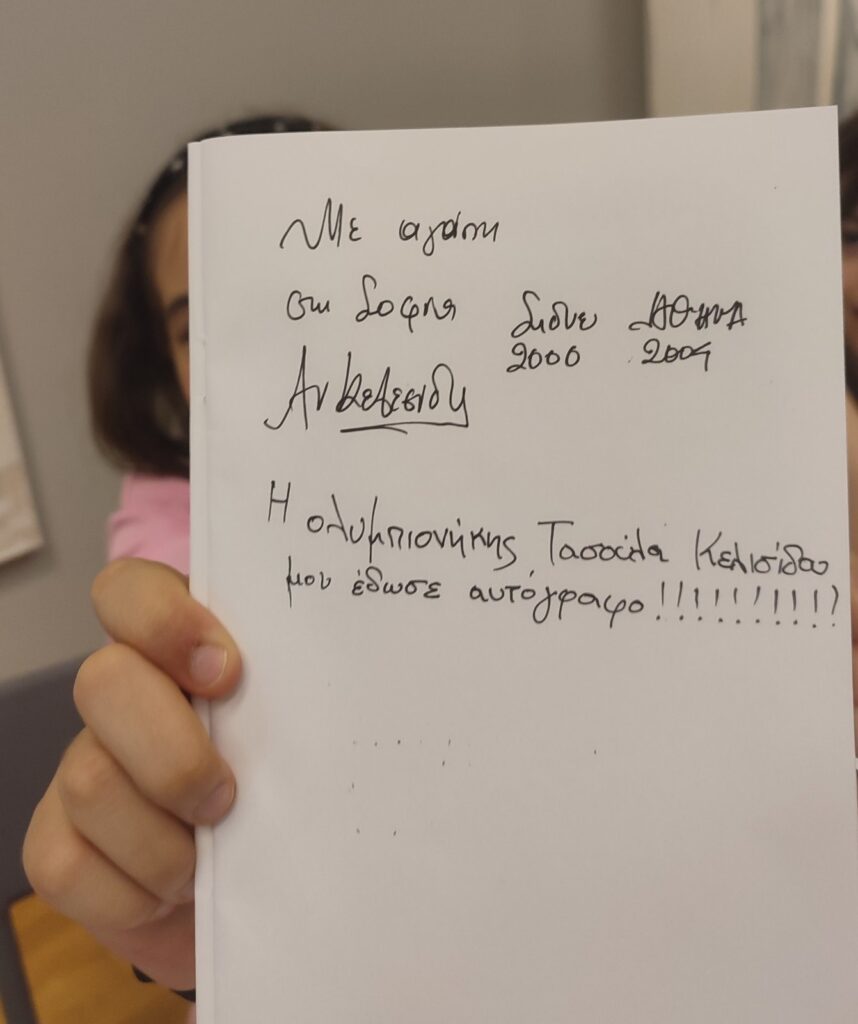 Με αγάπη
στη Σοφία Σίδνεϋ ΑΘΗΝΑ
2000 2004
Η ολυμπιονήκης Τασούλα Κελεσίδου
μου έδωσε αυτόγραφο!!!!!!!!!!